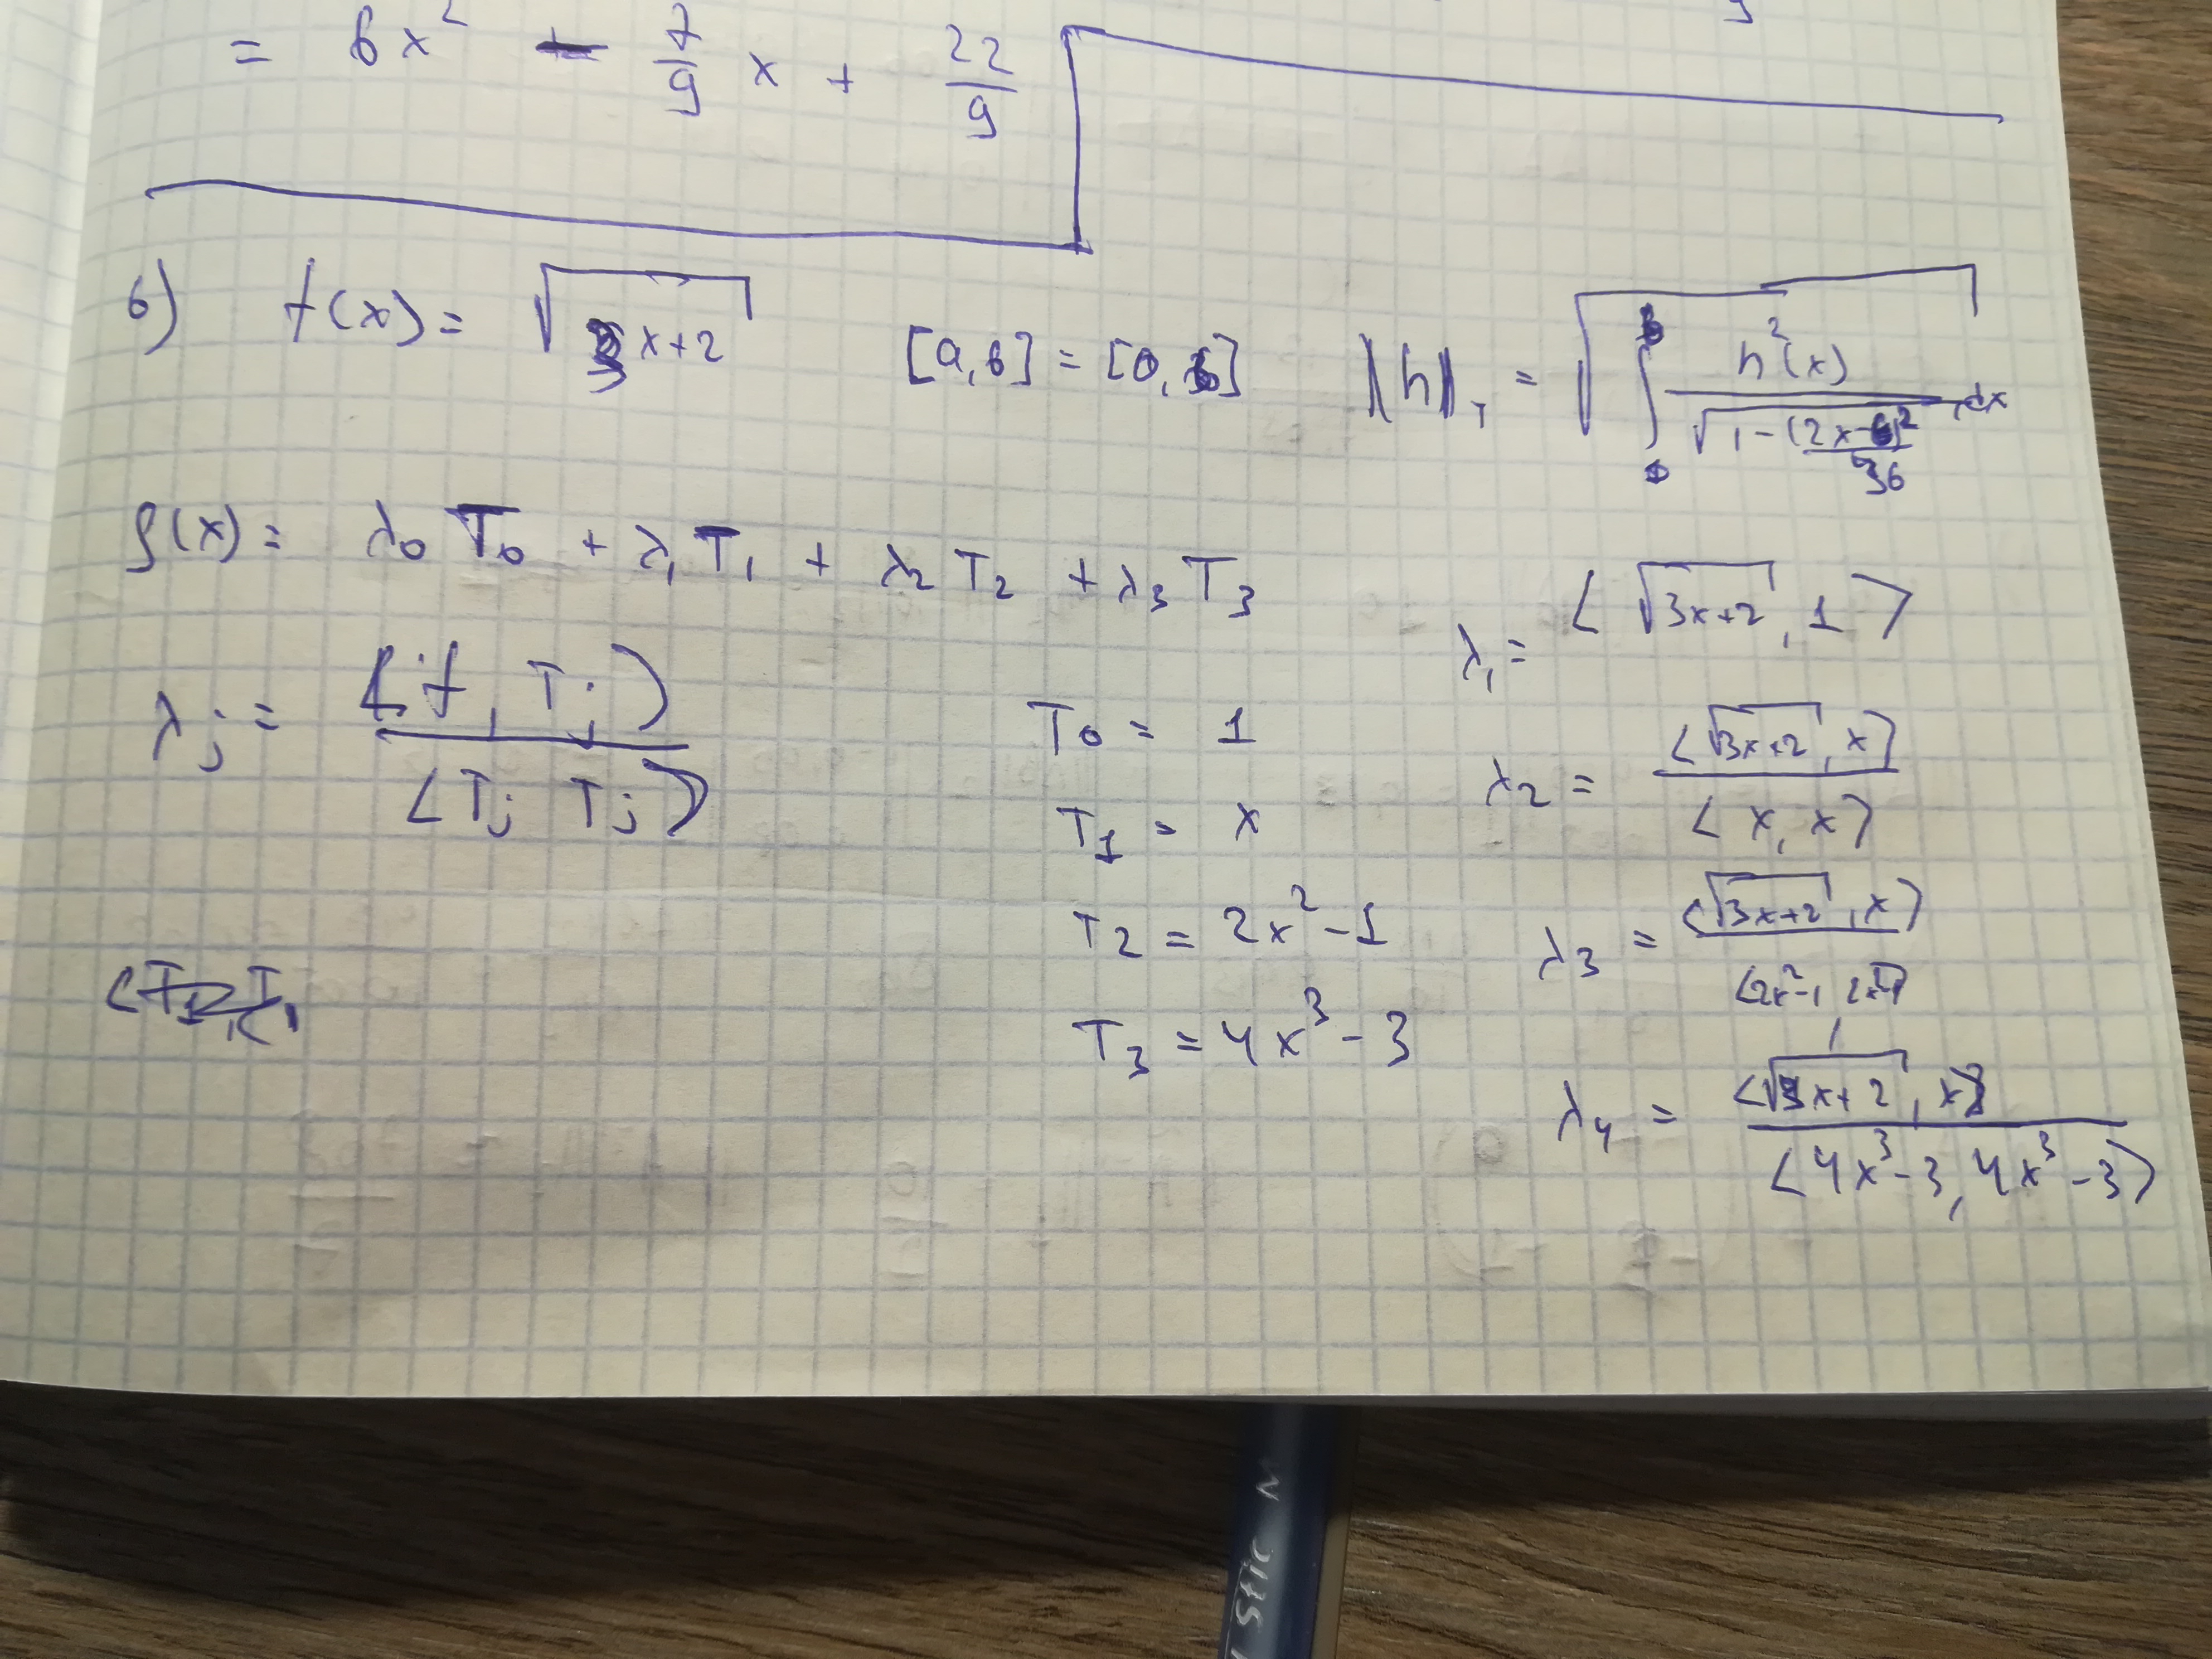 = 6x² - 7/9 x + 22/9
6) f(x) = √(3x+2) [a,b] = [0, 6] ||h||_T = √(∫₀⁶ h²(x)/√(1-(2x-6)²/36) dx)
g(x) = λ₀T₀ + λ₁T₁ + λ₂T₂ + λ₃T₃
λj = ⟨f, Tj⟩/⟨Tj Tj⟩
T₀ = 1
T₁ = x
T₂ = 2x² - 1
T₃ = 4x³ - 3
λ₁ = ⟨√(3x+2), 1⟩
λ₂ = ⟨√(3x+2), x⟩/⟨x, x⟩
λ₃ = ⟨√(3x+2), x⟩/⟨2x²-1, 2x²-1⟩
λ₄ = ⟨√(3x+2), x⟩/⟨4x³-3, 4x³-3⟩
Stic M